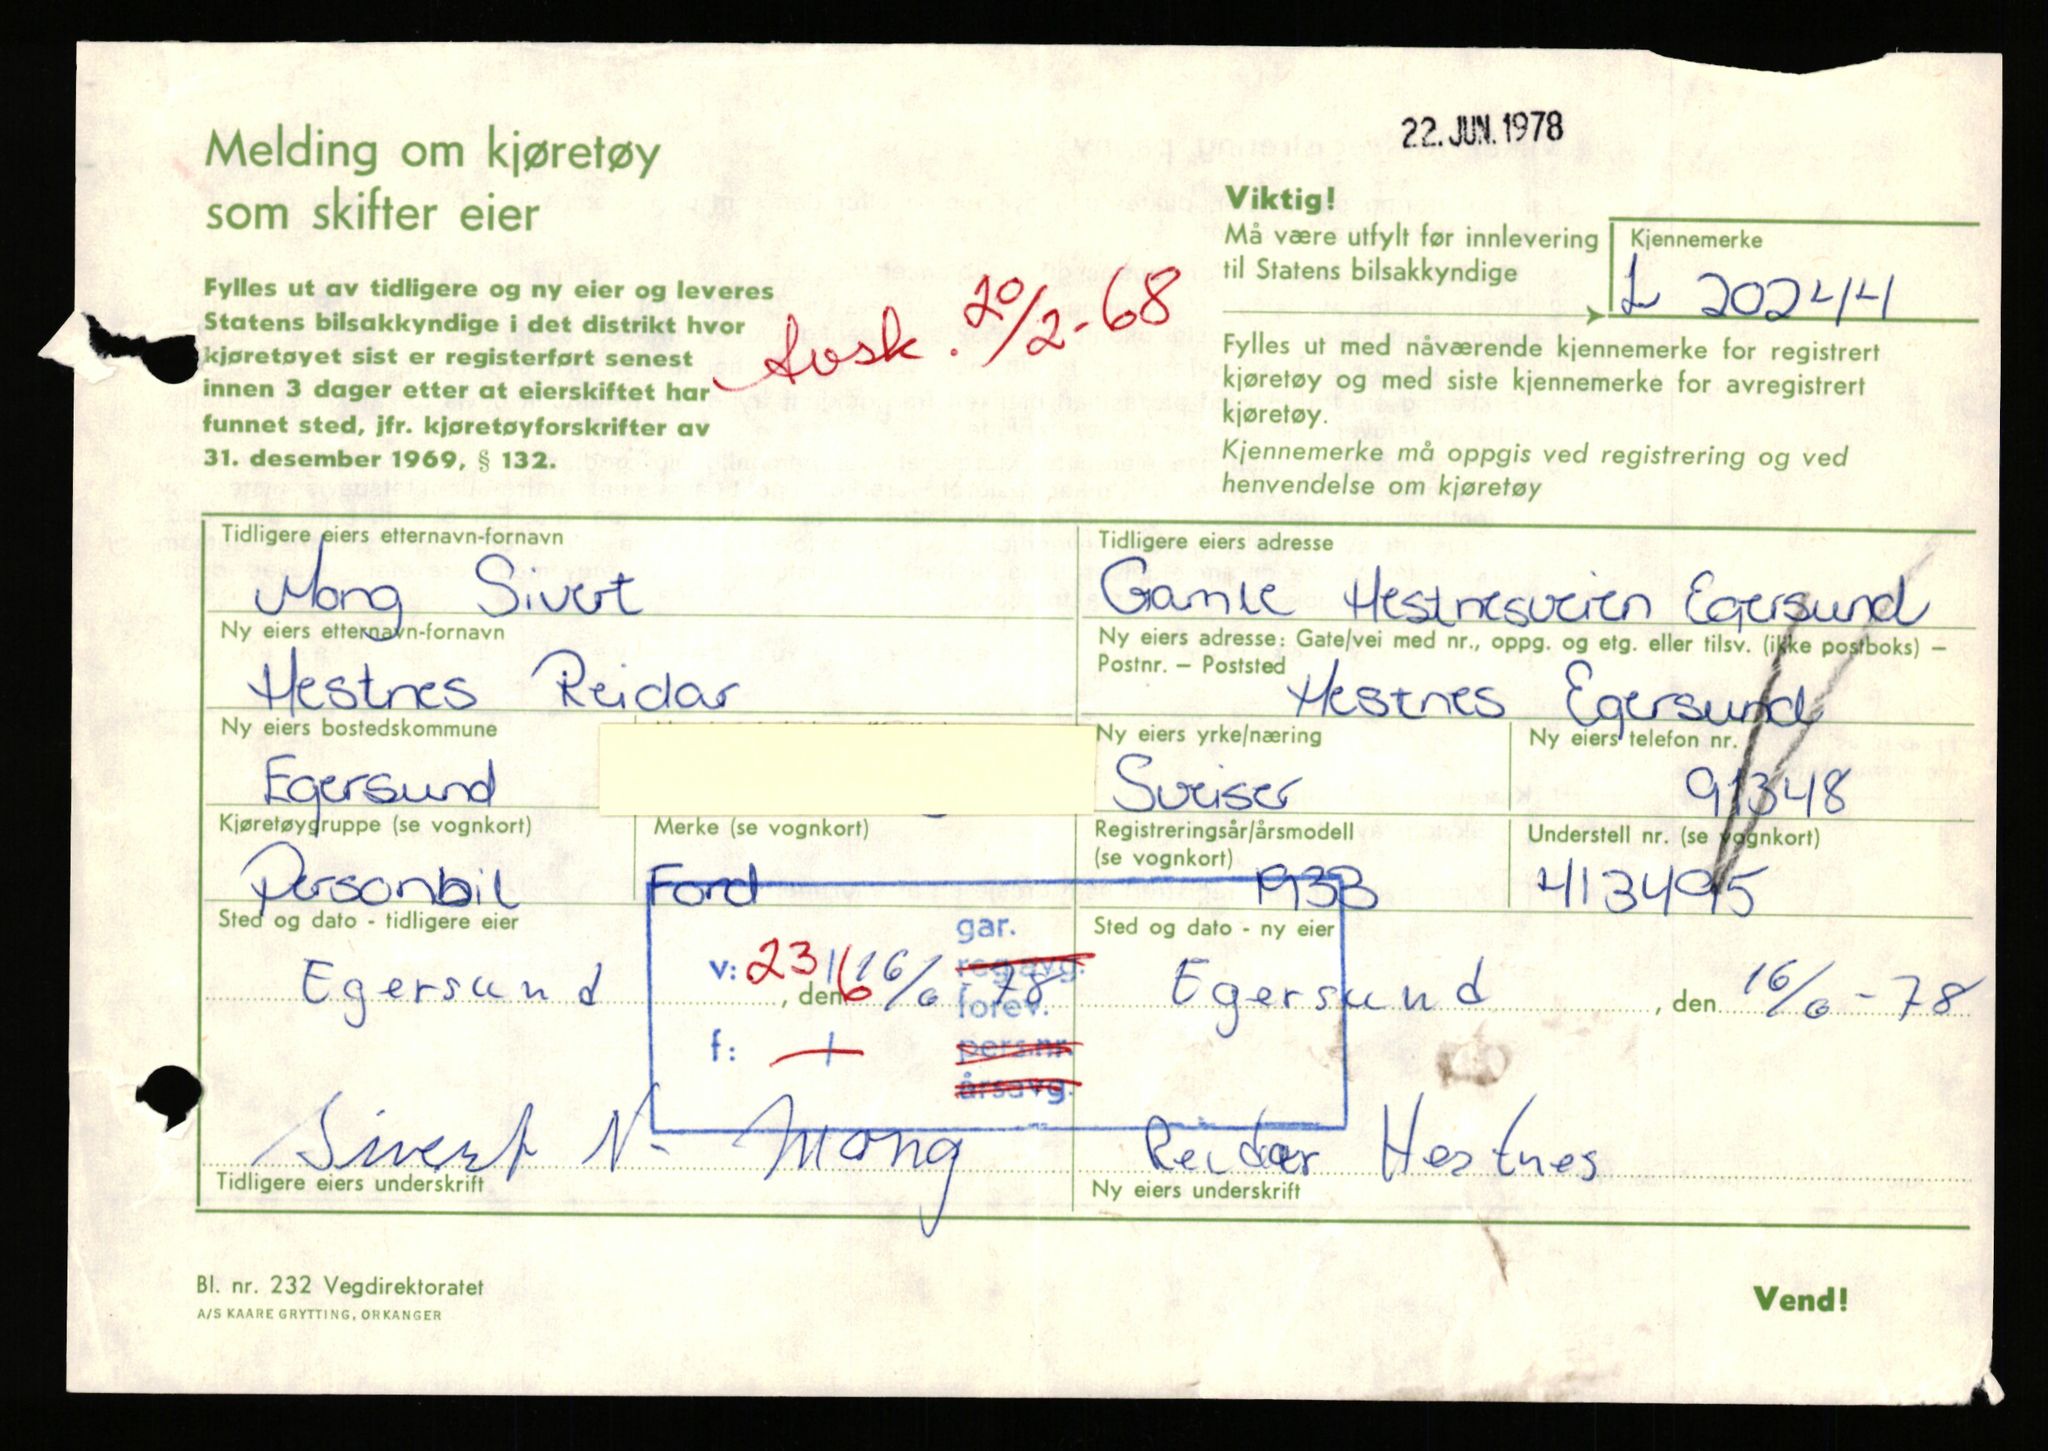 22. JUN. 1978
Melding om kjøretøy
som skifter eier
Viktig!
Må være utfylt før innlevering
til Statens bilsakkyndige
Kjennemerke
L 20244
Fylles ut av tidligere og ny eier og leveres
Statens bilsakkyndige i det distrikt hvor
kjøretøyet sist er registerført senest
innen 3 dager etter at eierskiftet har
funnet sted, jfr. kjøretøyforskrifter av
31. desember 1969, § 132.
Avsk. 20/2-68
Fylles ut med nåværende kjennemerke for registrert
kjøretøy og med siste kjennemerke for avregistrert
kjøretøy.
Kjennemerke må oppgis ved registrering og ved
henvendelse om kjøretøy
Tidligere eiers etternavn-fornavn
Mong Sivert
Tidligere eiers adresse
Gamle Hestnesveien Egersund
Ny eiers etternavn-fornavn
Hestnes Reidar
Ny eiers adresse: Gate/vei med nr., oppg. og etg. eller tilsv. (ikke postboks) –
Postnr. – Poststed
Hestnes Egersund
Ny eiers bostedskommune
Egersund
Ny eiers yrke/næring
Sveiser
Ny eiers telefon nr.
91348
Kjøretøygruppe (se vognkort)
Personbil
Merke (se vognkort)
Ford
Registreringsår/årsmodell
(se vognkort)
1933
Understell nr. (se vognkort)
413495
Sted og dato - tidligere eier
Egersund, den 16/6 78
Sted og dato - ny eier
Egersund, den 16/6-78
gar.
v: 23/6
reg.avg.
forev.
f: +
pers.nr.
årsavg.
Sivert N. Mong
Tidligere eiers underskrift
Reidar Hestnes
Ny eiers underskrift
Bl. nr. 232 Vegdirektoratet
A/S KAARE GRYTTING, ORKANGER
Vend!